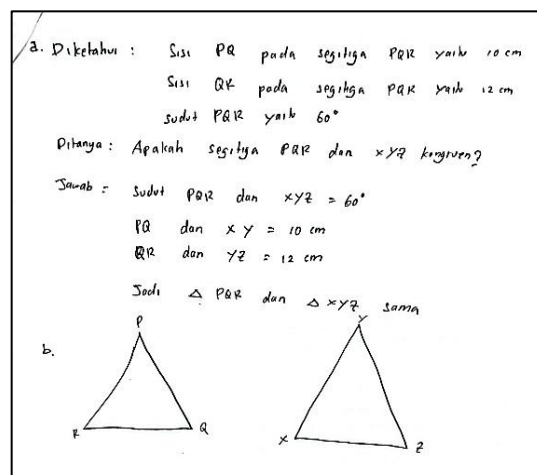 a. Diketahui : Sisi PQ pada segitiga PQR yaitu 10 cm
Sisi QR pada segitiga PQR yaitu 12 cm
sudut PQR yaitu 60°
Ditanya : Apakah segitiga PQR dan XYZ kongruen?
Jawab = Sudut PQR dan XYZ = 60°
PQ dan XY = 10 cm
QR dan YZ = 12 cm
Jadi △ PQR dan △ XYZ sama
b.
P
Y
R
Q
X
Z